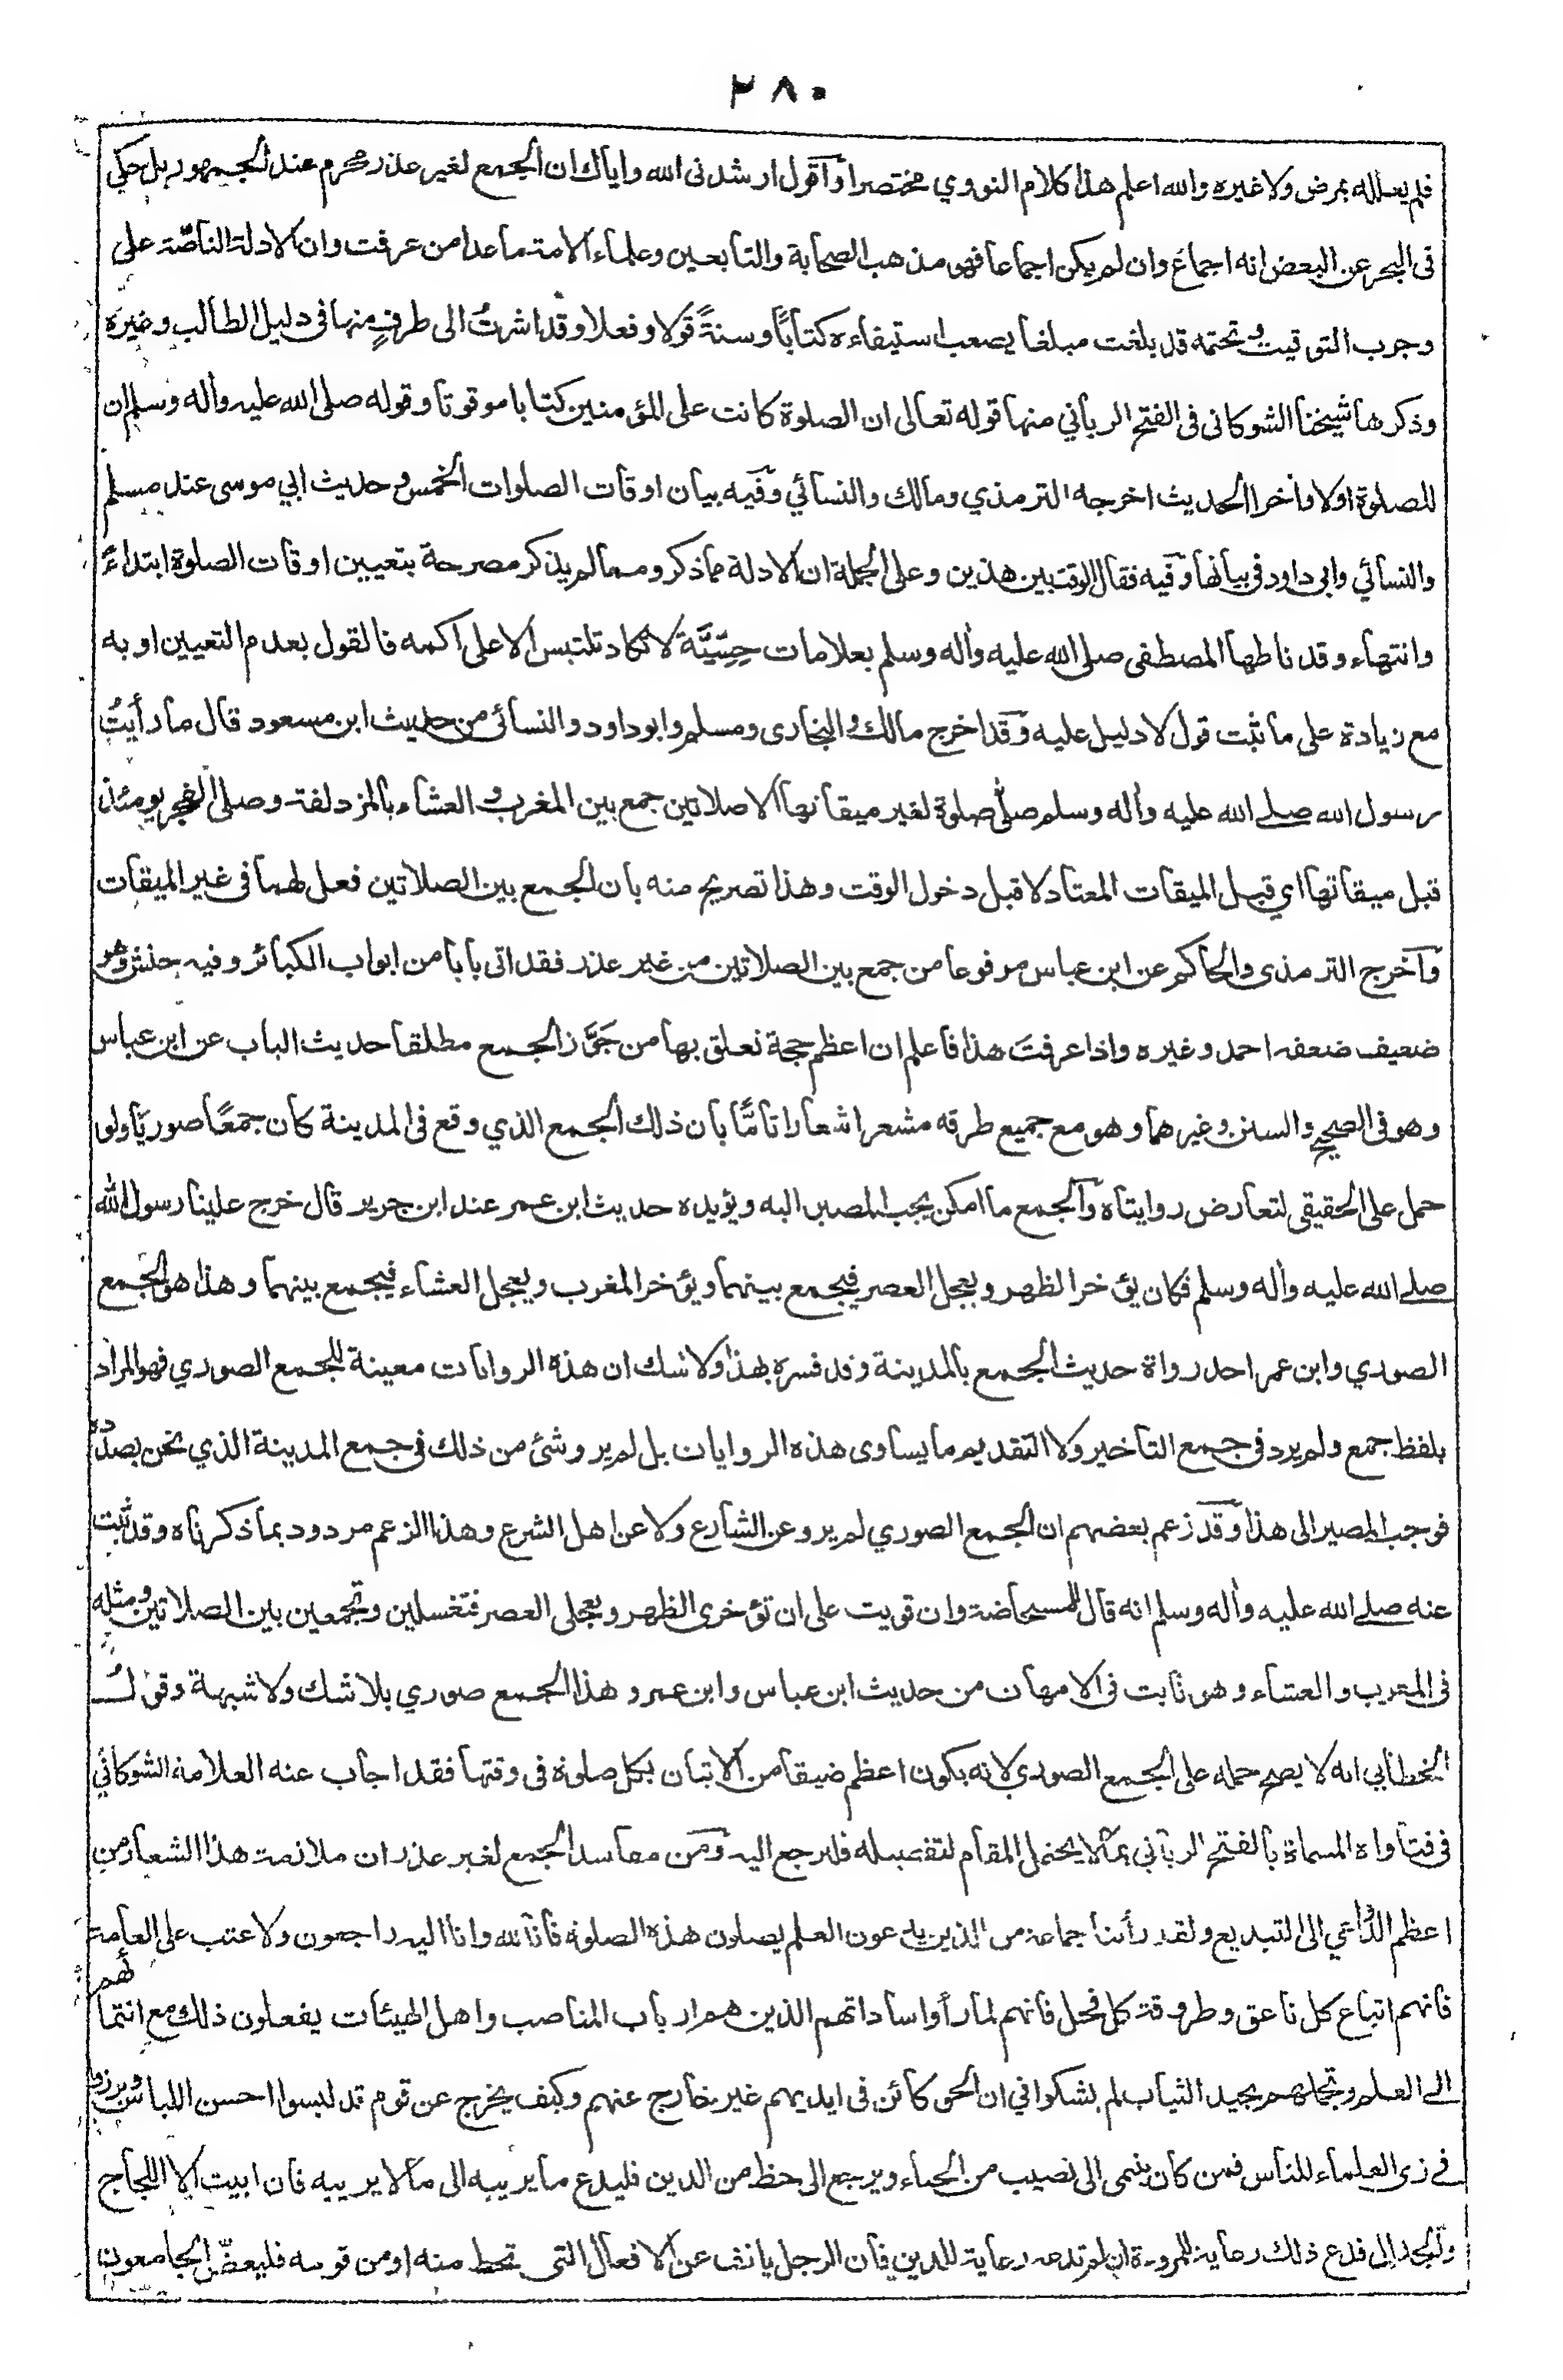 ٢٨٠
فلم يعلله بمرض ولا غيره والله اعلم هذا كلام النووي مختصرا وأقول ارشدنى الله واياك ان الجمع لغير عذر محرم عند الجمهور بل حكي
فى البحر عن البعض انه اجماع وان لم يكن اجماعا فهو مذهب الصحابة والتابعين وعلماء الامة ماعدا من عرفت وان الادلة الناصّة على
وجوب التوقيت وتحتمه قد بلغت مبلغا يصعب استيفاءه كتاباً وسنةً قولا وفعلا وقد اشرتُ الى طرفٍ منها فى دليل الطالب وغيره
وذكرها شيخنا الشوكانى فى الفتح الرباني منها قوله تعالى ان الصلوة كانت على المؤمنين كتابا موقوتا وقوله صلى الله عليه وأله وسلم ان
للصلوة اولا وأخرا الحديث اخرجه الترمذي ومالك والنسائي وفيه بيان اوقات الصلوات الخمس وحديث ابي موسى عند مسلم
والنسائي وابى داود فى بيانها وفيه فقال الوقت بين هذين وعلى الجملة ان الادلة مما ذكر ومما لم يذكر مصرحة بتعيين اوقات الصلوة ابتداءً
وانتهاء وقد ناطها المصطفى صلى الله عليه وأله وسلم بعلامات حِسِّيَّة لا تكاد تلتبس الا على اكمه فالقول بعدم التعيين او به
مع زيادة على ما ثبت قول لا دليل عليه وقد اخرج مالك والبخارى ومسلم وابو داود والنسائى من حديث ابن مسعود قال ما رأيتُ
رسول الله صلے الله عليه وأله وسلم صلّى صلوة لغير ميقاتها الا صلاتين جمع بين المغرب و العشاء بالمزدلفة وصلى الفجر يومئذ
قبل ميقاتها اي قبل الميقات المعتاد لا قبل دخول الوقت وهذا تصريح منه بان الجمع بين الصلاتين فعل لهما فى غير الميقات
وأخرج الترمذى والحاكم عن ابن عباس مرفوعا من جمع بين الصلاتين من غير عذر فقد اتى بابا من ابواب الكبائر وفيه حنش وهو
ضعيف ضعفه احمد وغيره واذا عرفتَ هذا فاعلم ان اعظم حجة تعلق بها من جَوَّز الجمع مطلقا حديث الباب عن ابن عباس
وهو فى الصحيح والسنن وغيرهما وهو مع جميع طرقه مشعر اشعارا تامًّا بان ذلك الجمع الذي وقع فى المدينة كان جمعًا صوريًا ولو
حمل على الحقيقى لتعارض روايتاه والجمع ما امكن يجب المصير اليه ويؤيده حديث ابن عمر عند ابن جرير قال خرج علينا رسول الله
صلے الله عليه وأله وسلم فكان يؤخر الظهر ويعجل العصر فيجمع بينهما ويؤخر المغرب ويعجل العشاء فيجمع بينهما وهذا هو الجمع
الصوري وابن عمر احد رواة حديث الجمع بالمدينة وقد فسره بهذا ولا شك ان هذه الروايات معينة للجمع الصوري فهو المراد
بلفظ جمع ولم يرد فى جمع التاخير ولا التقديم ما يساوى هذه الروايات بل لم يرو شئ من ذلك فى جمع المدينة الذي نحن بصدده
فوجب المصير الى هذا وقد زعم بعضهم ان الجمع الصوري لم يرو عن الشارع ولا عن اهل الشرع وهذا الزعم مردود بما ذكرناه وقد ثبت
عنه صلے الله عليه وأله وسلم انه قال للمستحاضة وان قويت على ان تؤخرى الظهر وتعجلى العصر فتغسلين وتجمعين بين الصلاتين ومثله
فى المغرب والعشاء وهو ثابت فى الامهات من حديث ابن عباس وابن عمر وهذا الجمع صوري بلا شك ولا شبهة وقولُ
الخطابي انه لا يصح حمله على الجمع الصوري لانه يكون اعظم ضيقا من الاتيان بكل صلوة فى وقتها فقد اجاب عنه العلامة الشوكاني
فى فتاواه المسماة بالفتح الرباني بما لا يحتمل المقام لتفصيله فليرجع اليه ومن مفاسد الجمع لغير عذر ان ملازمة هذا الشعار من
اعظم الدّاعي الى التبديع ولقد رأينا جماعة من الذين يدعون العلم يصلون هذه الصلوة فانا لله وانا اليه راجعون ولا عتب على العامة
فانهم اتباع كل ناعق وطروقة كل فحل فانهم لما رأوا ساداتهم الذين هم ارباب المناصب واهل الهيئات يفعلون ذلك مع انتمائهم
الى العلم وتجملهم بجيد الثياب لم يشكوا في ان الحق كائن فى ايديهم غير خارج عنهم وكيف يخرج عن قوم قد لبسوا احسن اللباس وبرزوا
فے زى العلماء للناس فمن كان ينتمى الى نصيب من الحياء ويرجع الى حظ من الدين فليدع ما يريبه الى ما لا يريبه فان ابيت الا اللجاج
والجدال فدع ذلك رعاية للمروءة ان لم تدعه رعاية للدين فان الرجل يانف عن الافعال التى تحط منه او من قومه فليعضّ الجامعون